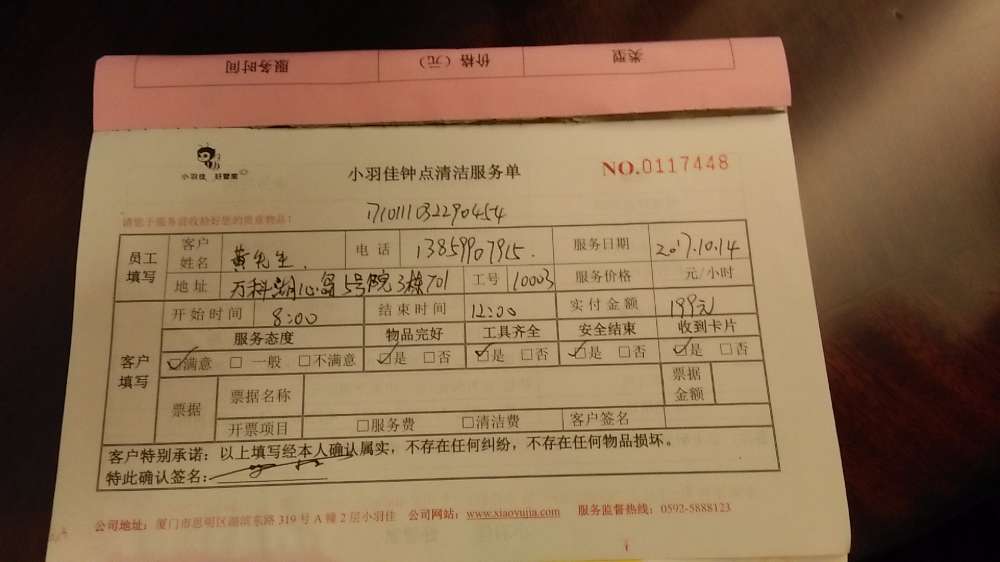 服务时间 价格（元） 类型
小羽佳 好管家
小羽佳钟点清洁服务单
NO.0117448
请您于服务前收拾好您的贵重物品！
171011032290454
员工填写 客户姓名 黄先生 电话 13859907915. 服务日期 2017.10.14
地址 万科湖心岛5号院3栋701 工号 10003 服务价格 元/小时
开始时间 8:00 结束时间 12:00 实付金额 199元
客户填写 服务态度 物品完好 工具齐全 安全结束 收到卡片
☑满意 □一般 □不满意 ☑是 □否 ☑是 □否 ☑是 □否 ☑是 □否
票据 票据名称 票据金额
开票项目 □服务费 □清洁费 客户签名
客户特别承诺：以上填写经本人确认属实，不存在任何纠纷，不存在任何物品损坏。
特此确认签名：
公司地址：厦门市思明区湖滨东路319号A幢2层小羽佳 公司网站：www.xiaoyujia.com 服务监督热线：0592-5888123